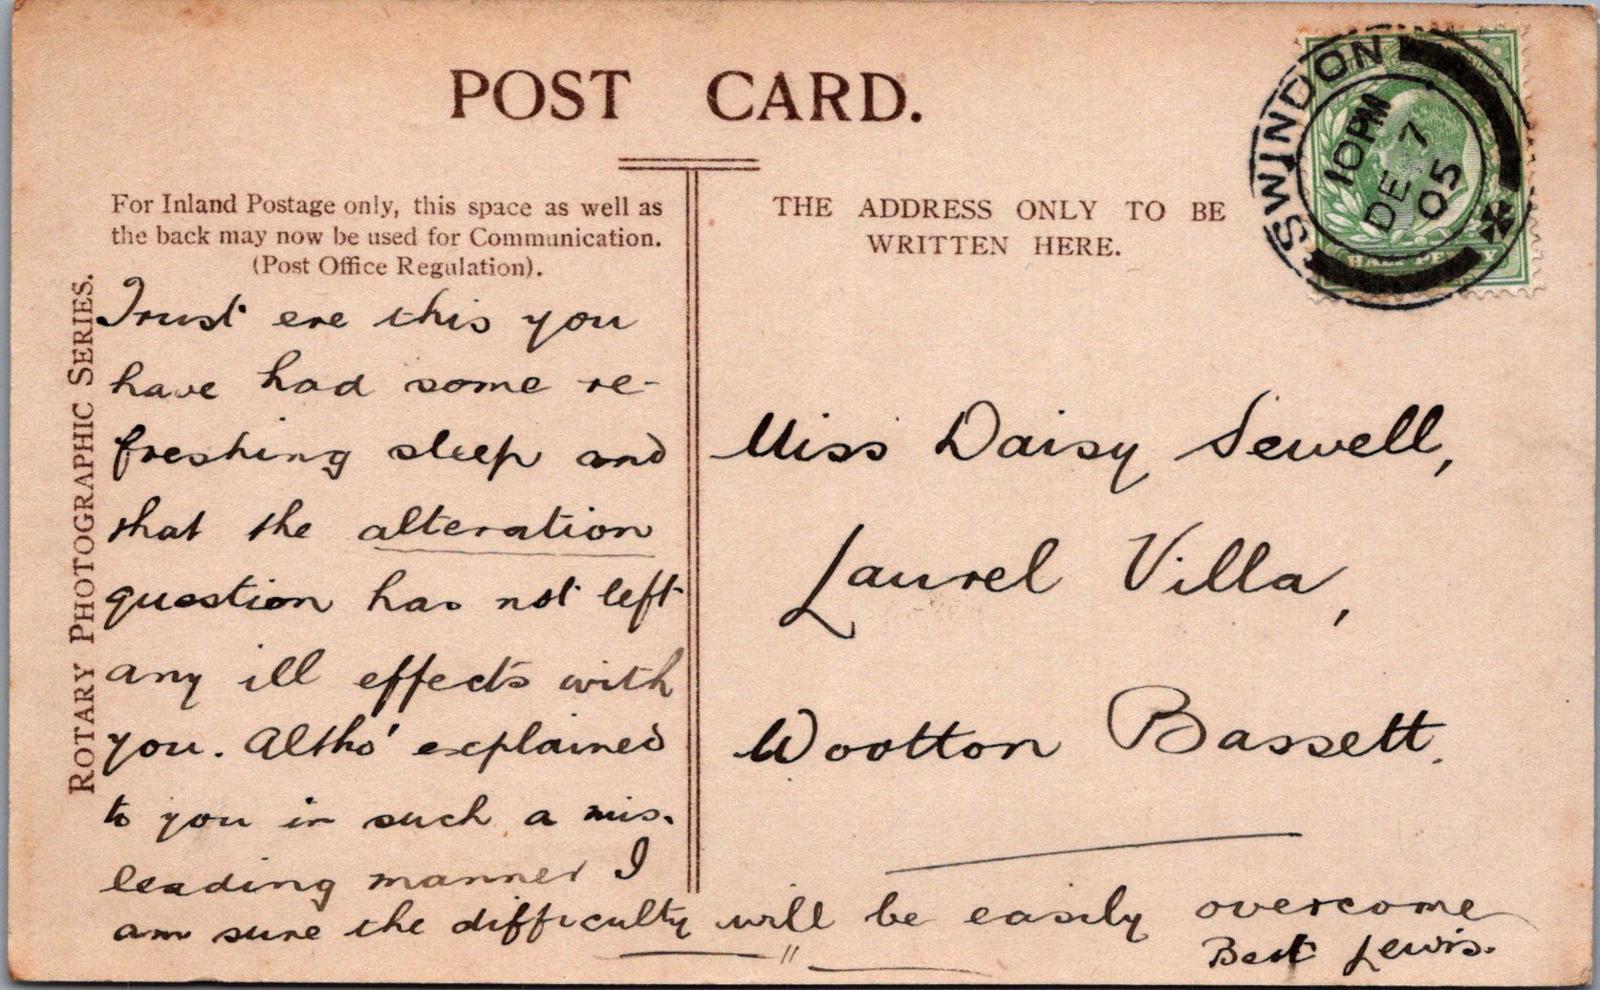 POST CARD.
For Inland Postage only, this space as well as
the back may now be used for Communication.
(Post Office Regulation).
THE ADDRESS ONLY TO BE
WRITTEN HERE.
SWINDON
10 PM
DE 7
05
HALF PENNY
ROTARY PHOTOGRAPHIC SERIES.
Trust ere this you
have had some re-
freshing sleep and
that the alteration
question has not left
any ill effects with
you. Altho' explained
to you in such a mis-
leading manner I
am sure the difficulty will be easily overcome
Lewis.
Miss Daisy Sewell,
Laurel Villa,
Wootton Bassett.